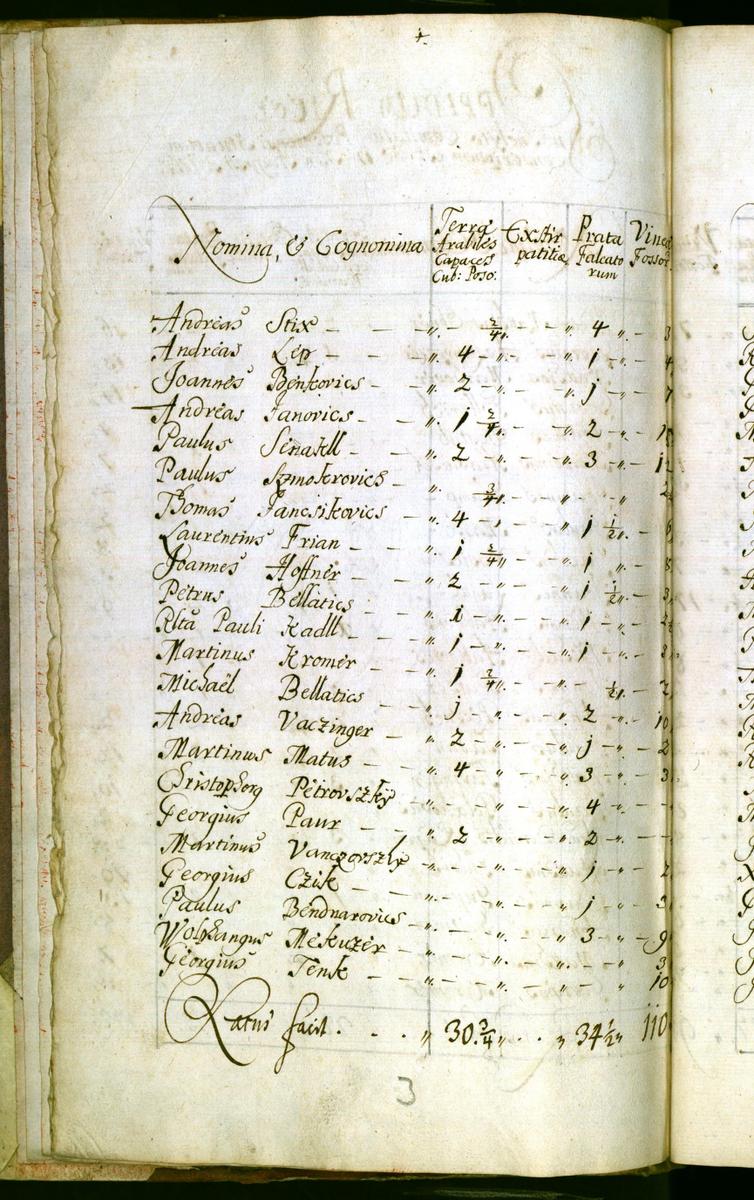 Nomina, & Cognomina Terræ Arabiles Capaces Cub: Poso: Exstirpatitiæ Prata Falcatorum Vinea Fossor
Andreas Stix – – – „ – 2/4 „ – – „ 4 „ – 3
Andreas Lép – – – „ 4 – „ – – „ j „ – 4
Joannes Benkovics – – „ 2 – „ – – „ j „ – 7
Andreas Janovics – – „ j 2/4 „ – – „ 2 „ – 15
Paulus Senakll – – „ 2 – „ – – „ 3 „ – 12
Paulus Szmokrovics – „ – 3/4 „ – – „ – „ – 2
Thomas Jancsikovics – „ 4 – „ – – „ j 1/2 „ – 6
Laurentius Frian – – „ j 2/4 „ – – „ j „ – 8
Joannes Hoffner – – „ 2 – „ – – „ j 1/2 „ – 3
Petrus Bellatics – – „ 1 – „ – – „ j „ – 2
Rlta Pauli Kadll – – „ j – „ – – „ j „ – 3
Martinus Kromer – – „ j 3/4 „ – – „ – 1/2 „ – 2
Michaël Bellatics – – „ j – „ – – „ 2 „ – 10
Andreas Vaczinger – „ 2 – „ – – „ j „ – 2
Martinus Matus – – „ 4 – „ – – „ 3 „ – 3
Christopherg Petrovszkÿ „ – – „ – – „ 4 „ – –
Georgius Paur – – „ 2 – „ – – „ 2 „ – –
Martinus Vanczovszky „ – – „ – – „ j „ – 2
Georgius Czik – – „ – – „ – – „ j „ – 3
Paulus Bendnarovics „ – – „ – – „ 3 „ – 9
Wolphangus Mekuzer „ – – „ – – „ – „ 3
Georgius Tenk – – „ – – „ – – „ – „ 10
Latus facit . . . „ 30 3/4 „ . . „ 34 1/2 „ 110
3